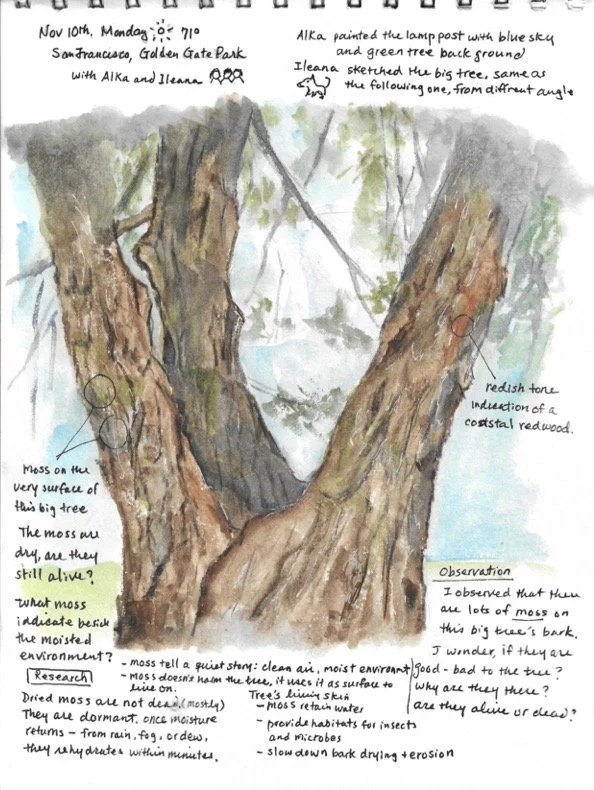 Nov 10th, Monday 71°
San Francisco, Golden Gate Park
with Alka and Ileana
Alka painted the lamp post with blue sky
and green tree back ground
Ileana sketched the big tree, same as
the following one, from diffrent angle
redish tone
indication of a
coastal redwood.
Moss on the
very surface of
this big tree
The moss are
dry, are they
still alive?
What moss
indicate beside
the moisted
environment?
Observation
I observed that there
are lots of moss on
this big tree's bark.
I wonder, if they are
good - bad to the tree?
Why are they there?
are they alive or dead?
- moss tell a quiet story: clean air, moist environmt
- Moss doesn't harm the tree, it uses it as surface to
live on.
Research
Dried moss are not dead, (mostly)
They are dormant. once moisture
returns - from rain, fog, or dew,
they rehydrates within minutes.
Tree's living skin
- moss retain water
- provide habitats for insects
and microbes
- slow down bark drying + erosion